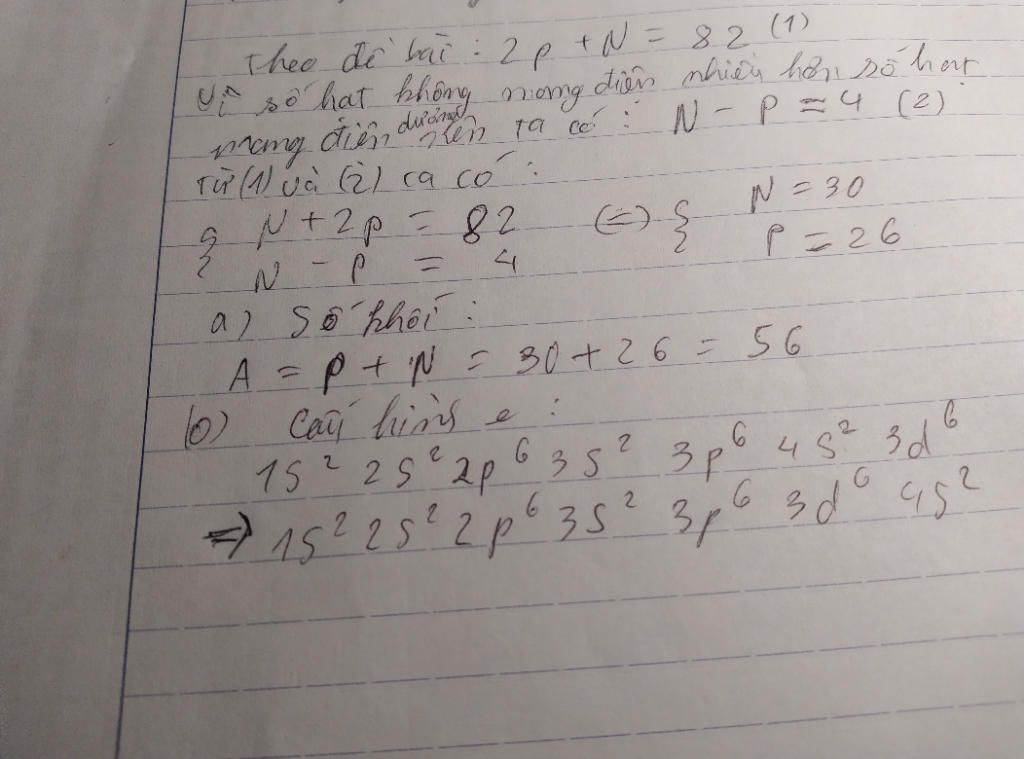 Theo đề bài : 2p + N = 82 (1)
Vì số hạt không mang điện nhiều hơn số hạt
mang điện dương nên ta có : N - P = 4 (2)
Từ (1) và (2) ta có :
{ N + 2p = 82 (=) { N = 30
N - P = 4 P = 26
a) Số khối :
A = P + N = 30 + 26 = 56
b) Cấu hình e :
1s² 2s² 2p⁶ 3s² 3p⁶ 4s² 3d⁶
=> 1s² 2s² 2p⁶ 3s² 3p⁶ 3d⁶ 4s²